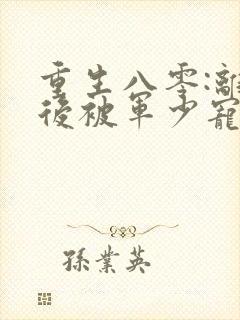 重生八零:離
後被軍少寵
孫業英